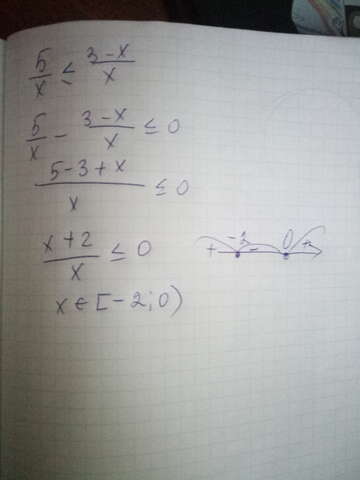 5/x ≤ 3-x/x
5/x - 3-x/x ≤ 0
5-3+x/x ≤ 0
x+2/x ≤ 0
+ -2 - 0 +
x ∈ [-2; 0)